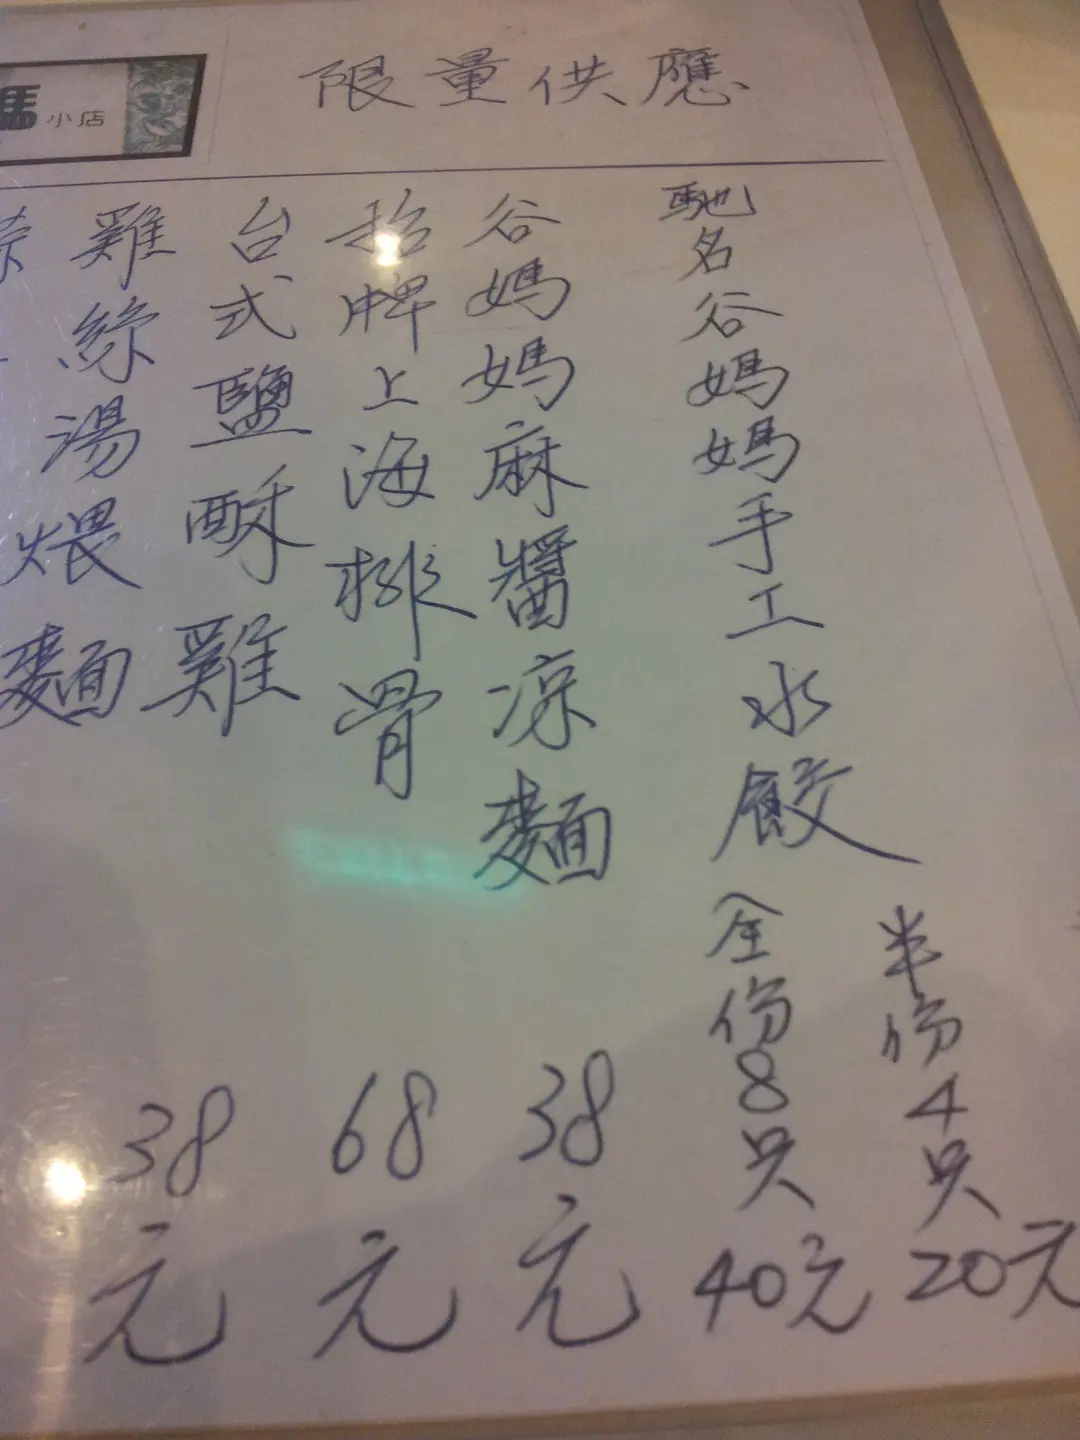 限量供應
媽小店
馳名谷媽媽手工水餃
半份4只20元
全份8只40元
谷媽媽麻醬凉麵
38元
招牌上海排骨
68元
台式鹽酥雞
38元
雞絲湯煨麵